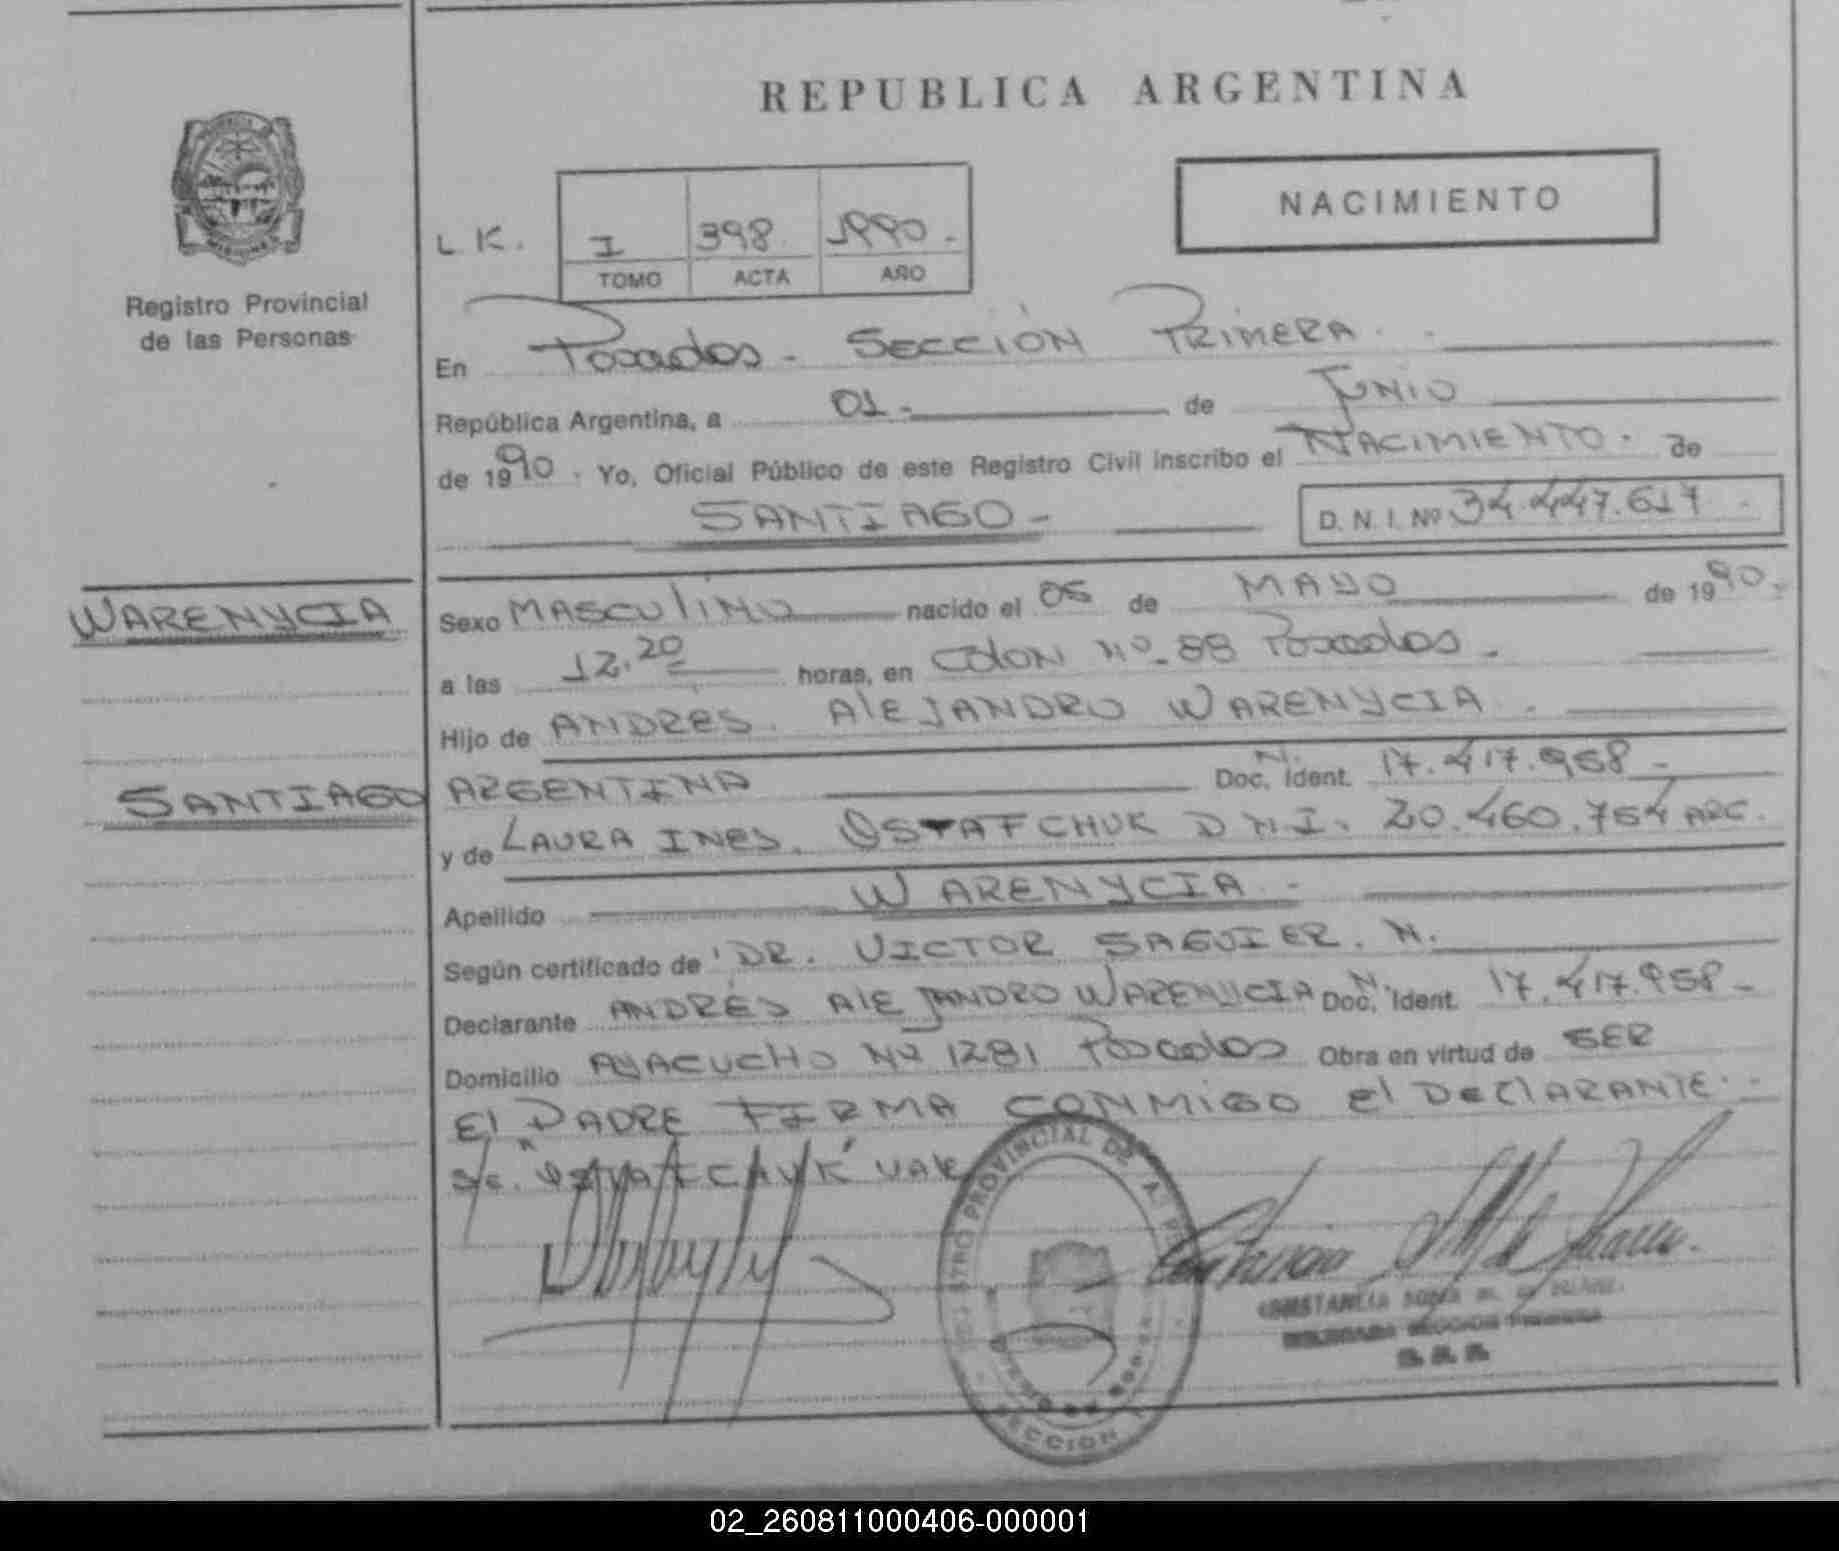 REPUBLICA ARGENTINA
NACIMIENTO
L.K. I 398 1990.-
TOMO ACTA AÑO
Registro Provincial
de las Personas
En Posadas - SECCIÓN PRIMERA.
República Argentina, a 01.- de JUNIO
de 1990. Yo, Oficial Público de este Registro Civil inscribo el NACIMIENTO. de
SANTIAGO -
D. N. I. Nº 34.447.617
WARENYCIA
SANTIAGO
Sexo MASCULINO nacido el 05 de MAYO de 1990.-
a las 12.20 horas, en COLON Nº. 88 Posadas.
Hijo de ANDRES. ALEJANDRO WARENYCIA.
ARGENTINA Doc. Ident. N. 17.417.958 -
y de LAURA INES. OSTAFCHUK D N I. 20.460.754 ARG.
Apellido WARENYCIA.-
Según certificado de DR. VICTOR SAGUIER. M.
Declarante ANDRÉS ALEJANDRO WARENYCIA Doc. Ident. N. 17.417.958 -
Domicilio AYACUCHO Nº 1281 Posadas Obra en virtud de SER
El PADRE FIRMA CONMIGO el DECLARANTE.-
VALE
REGISTRO PROVINCIAL DE
SECCION
CONSTANCIA
DELEGADA SECCION PRIMERA
02_260811000406-000001